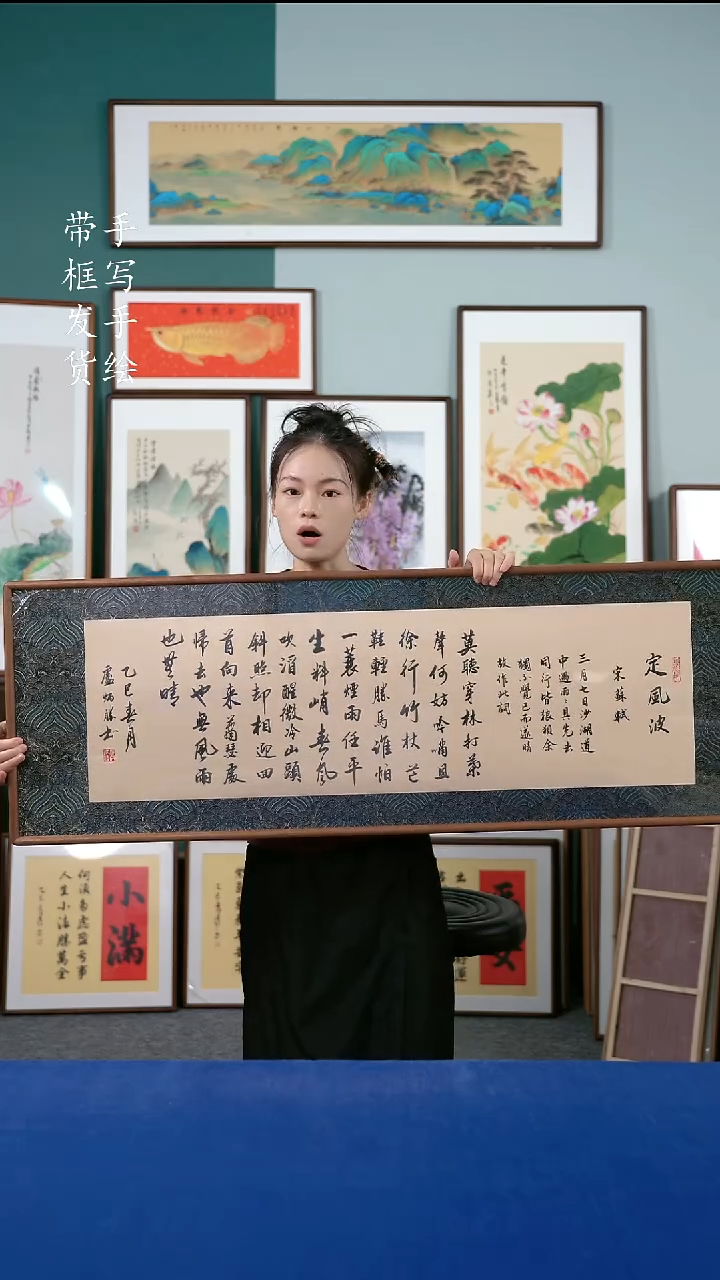 手写手绘
带框发货
定風波
宋蘇軾
三月七日沙湖道
中遇雨雨具先去
同行皆狼狽余
獨不覺已而遂晴
故作此詞
莫聽穿林打葉
聲何妨吟嘯且
徐行竹杖芒
鞋輕勝馬誰怕
一蓑煙雨任平
生料峭春風
吹酒醒微冷山頭
斜照却相迎回
首向來蕭瑟處
歸去也無風雨
也無晴
乙巳春月
小滿
何須多慮盈亏事
人生小滿勝萬全